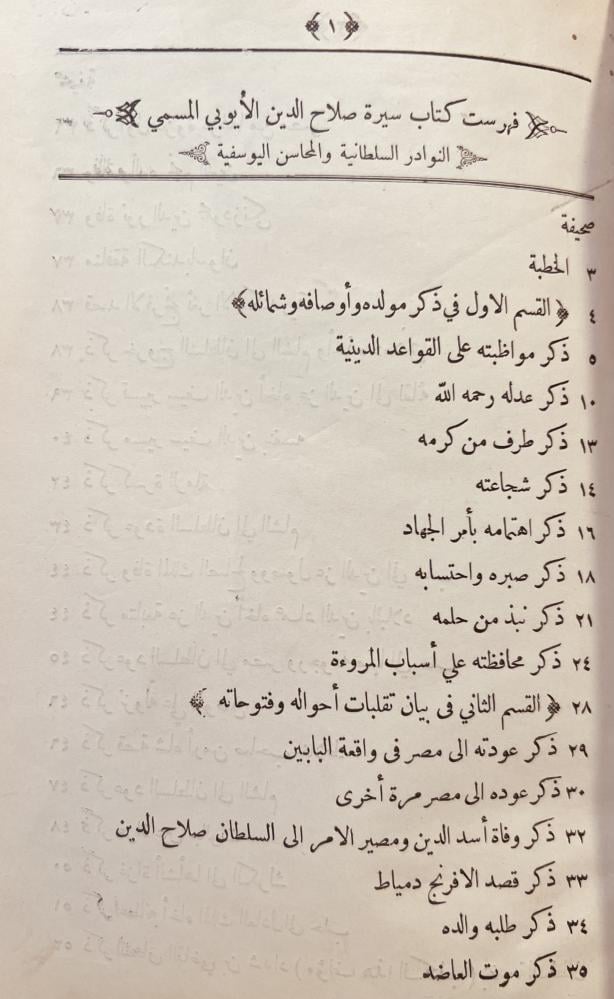 ﴿ ١ ﴾
فهرست كتاب سيرة صلاح الدين الأيوبي المسمي
النوادر السلطانية والمحاسن اليوسفية
صحيفة
٣ الخطبة
٤ ﴿ القسم الاول في ذكر مولده وأوصافه وشمائله ﴾
٥ ذكر مواظبته على القواعد الدينية
١٠ ذكر عدله رحمه الله
١٣ ذكر طرف من كرمه
١٤ ذكر شجاعته
١٦ ذكر اهتمامه بأمر الجهاد
١٨ ذكر صبره واحتسابه
٢١ ذكر نبذ من حلمه
٢٤ ذكر محافظته علي أسباب المروءة
٢٨ ﴿ القسم الثاني فى بيان تقلبات أحواله وفتوحاته ﴾
٢٩ ذكر عودته الى مصر فى واقعة البابين
٣٠ ذكر عوده الى مصر مرة أخرى
٣٢ ذكر وفاة أسد الدين ومصير الامر الى السلطان صلاح الدين
٣٣ ذكر قصد الافرنج دمياط
٣٤ ذكر طلبه والده
٣٥ ذكر موت العاضد